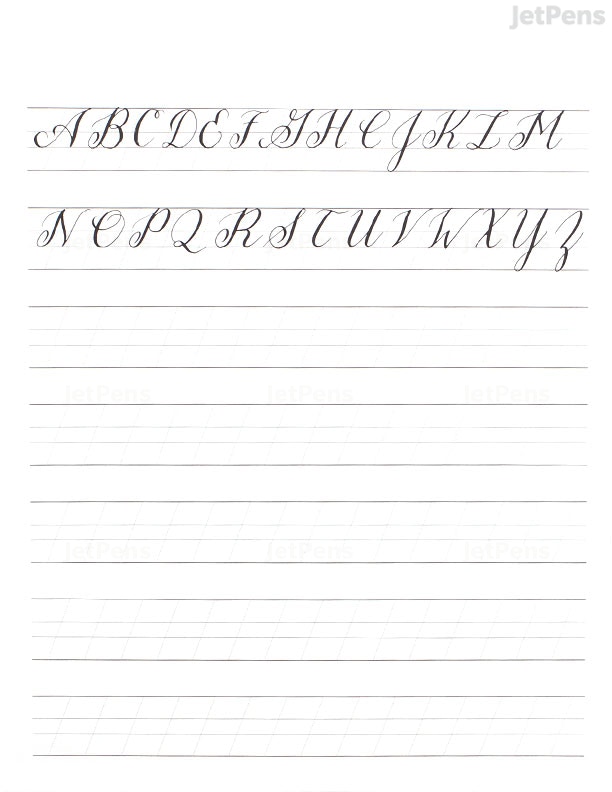 JetPens
A B C D E F G H I J K L M
N O P Q R S T U V W X Y Z
JetPens JetPens JetPens
JetPens JetPens JetPens